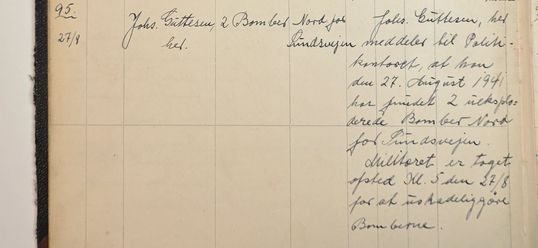 95.
27/8
Johs. Guttesen,
her.
2 Bomber Nord for
Sundsvejen
Johs. Guttesen, her
meddeler til Politi-
kontoret, at han
den 27. August 1941
har fundet 2 ueksplo-
derede Bomber Nord
for Sundsvejen.
Militæret er taget
afsted Kl. 5 den 27/8
for at uskadeliggöre
Bomberne.